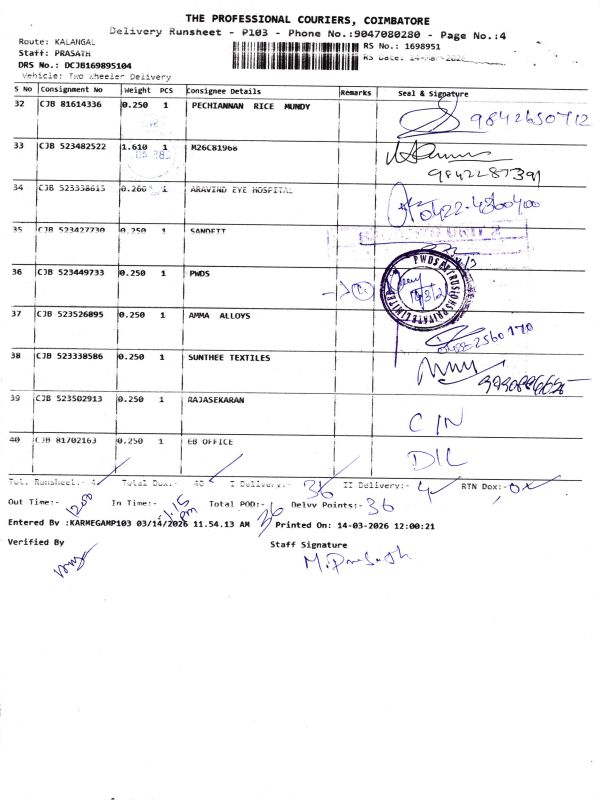 THE PROFESSIONAL COURIERS, COIMBATORE
Delivery Runsheet - P103 - Phone No.:9047080280 - Page No.:4
Route: KALANGAL
RS No.: 1698951
Staff: PRASATH
RS Date: 14-Mar-2026
DRS No.: DCJB169895104
Vehicle: Two Wheeler Delivery
S No Consignment No Weight PCS Consignee Details Remarks Seal & Signature
32 CJB 81614336 0.250 1 PECHIANNAN RICE MUNDY
9842650712
33 CJB 523482522 1.610 1 M26C81968
9842287391
34 CJB 523338613 0.260 1 ARAVIND EYE HOSPITAL
0422-4360400
35 CJB 523427730 0.250 1
36 CJB 523449733 0.250 1 PWDS
37 CJB 523526895 0.250 1 AMMA ALLOYS
38 CJB 523338586 0.250 1 SUNTHEE TEXTILES
39 CJB 523502913 0.250 1 RAJASEKARAN
C/N
40 CJB 81702163 0.250 1 EB OFFICE
D/L
Tot. Runsheet:- 4 Total Dox:- 40 I Delivery:- 36 II Delivery:- 4 RTN Dox:-
Out Time:- 1200 In Time:- Total POD:- 36 Delvy Points:- 36
Entered By :KARMEGAMP103 03/14/2026 11.54.13 AM Printed On: 14-03-2026 12:00:21
Verified By Staff Signature
M. Prasath